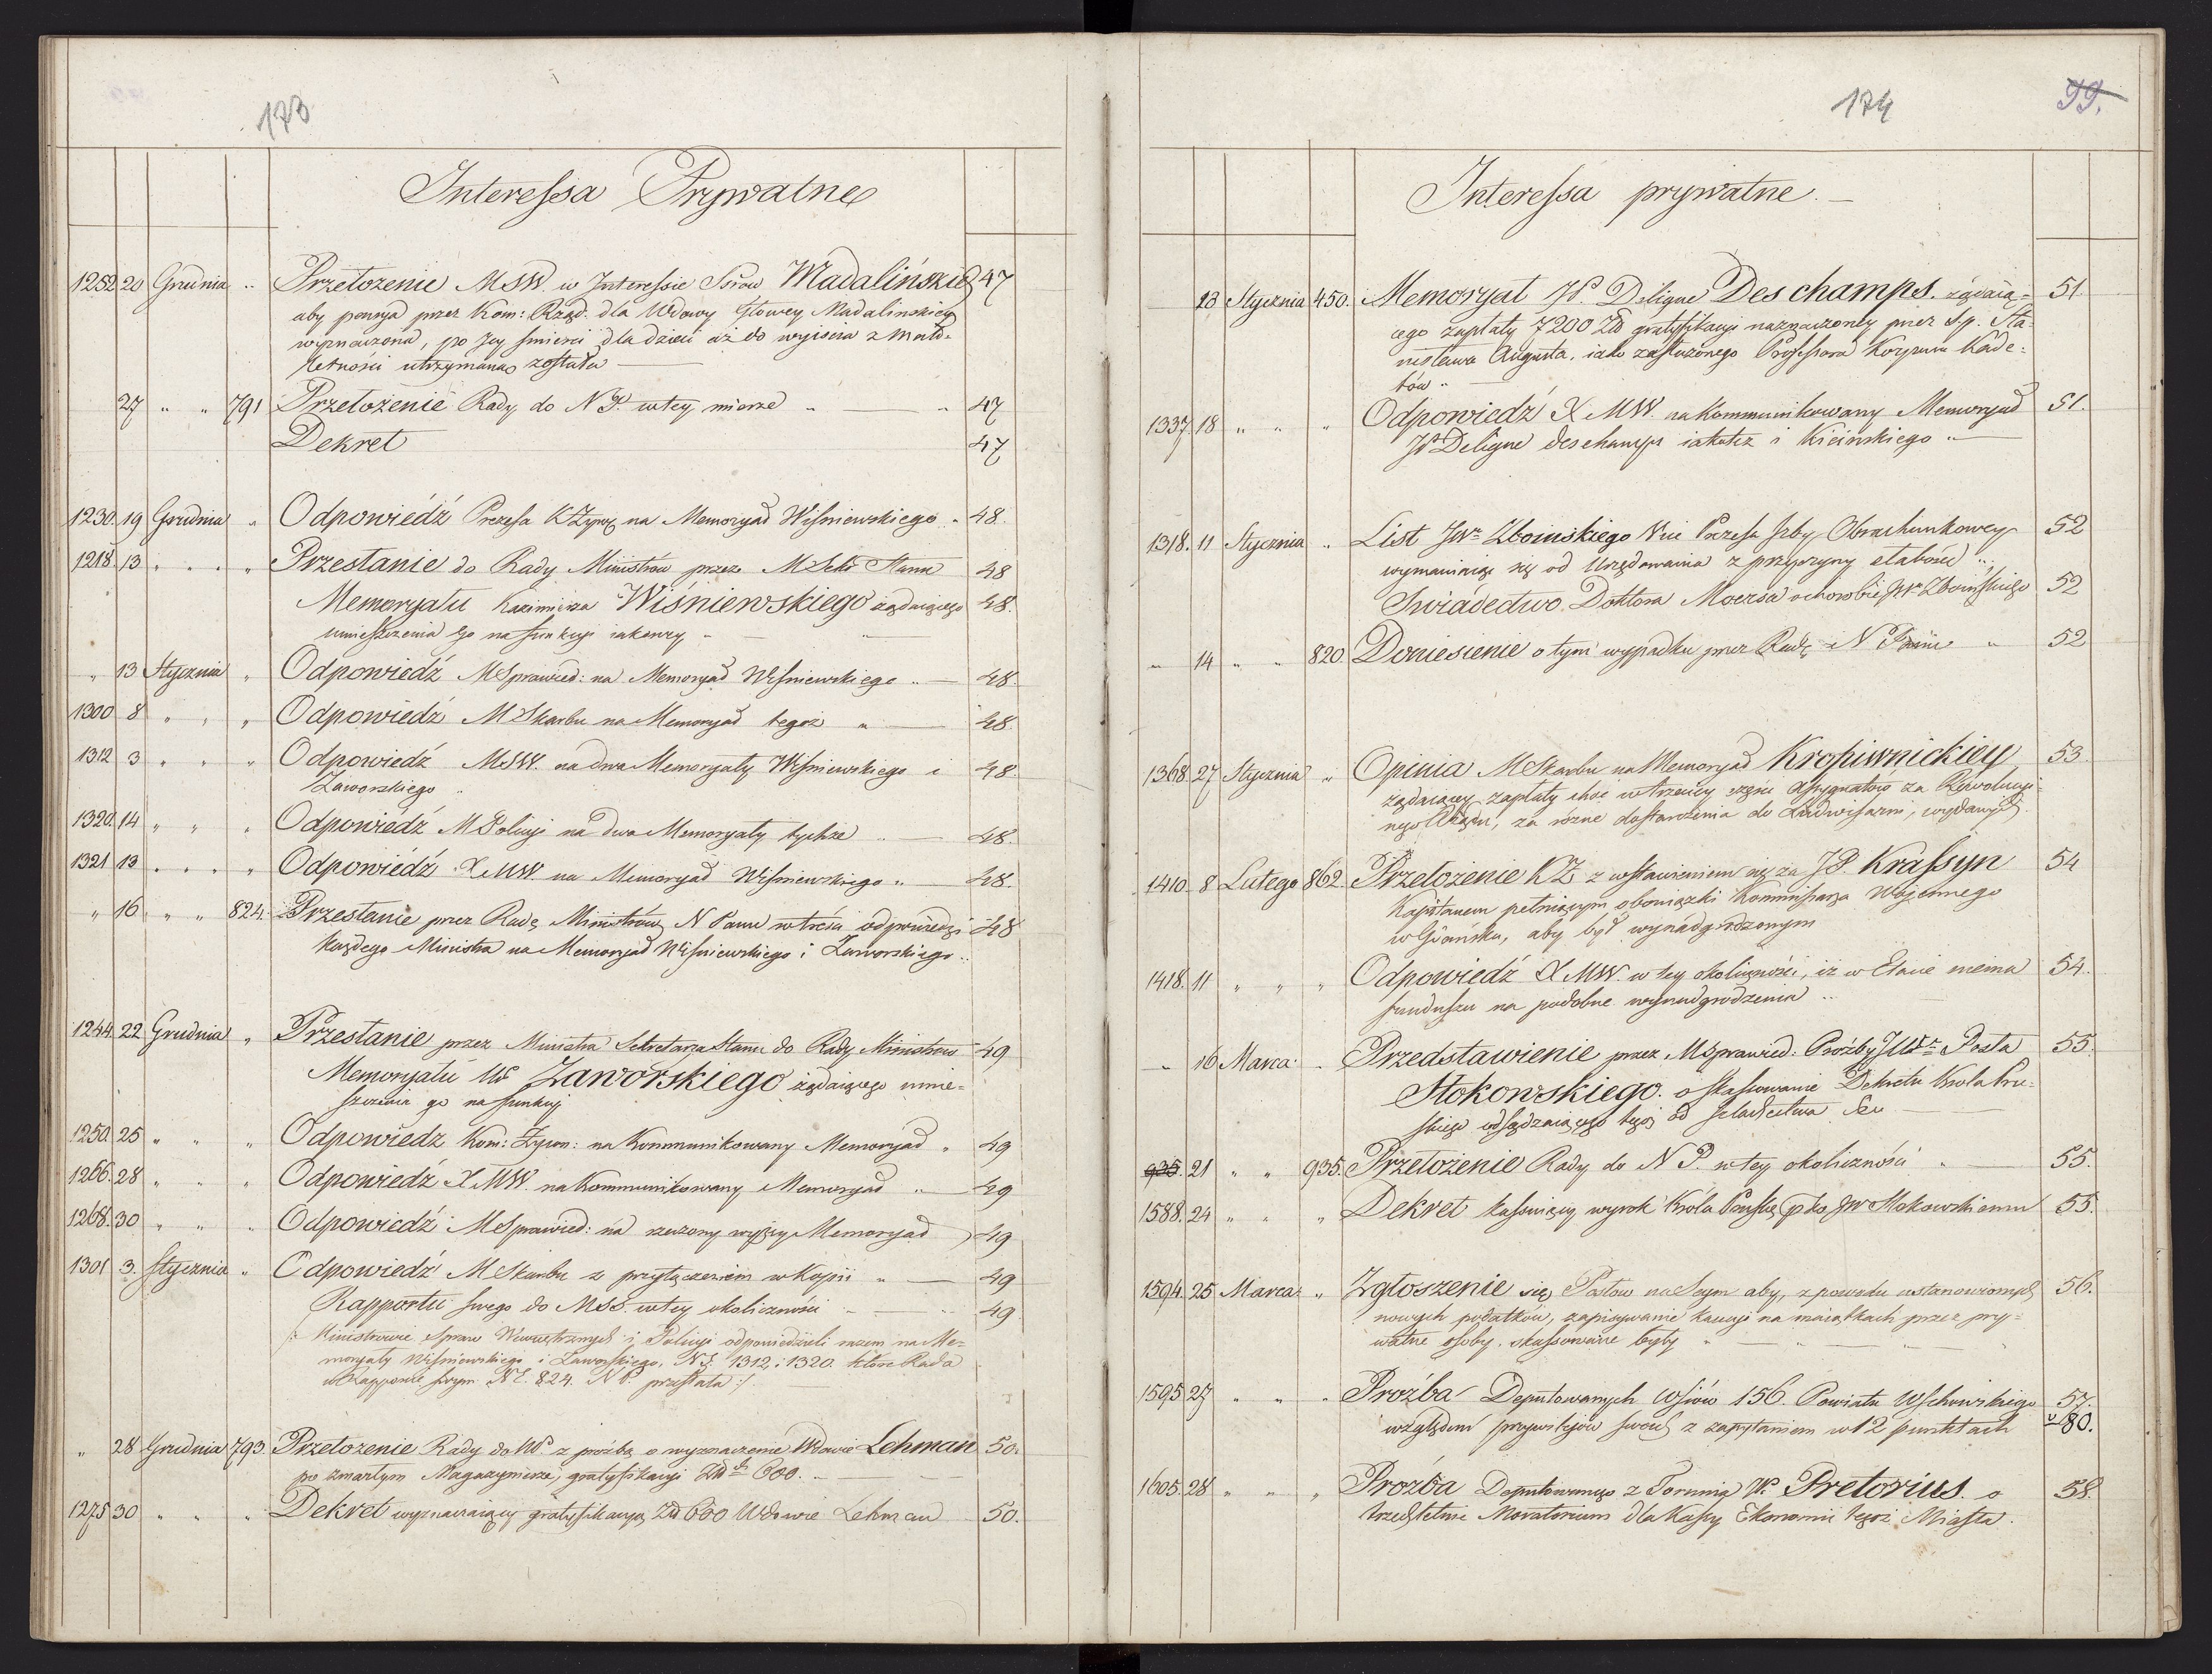 173
Interessa Prywatne
1252 20 Grudnia " Przełożenie MSW. w Interessie Ssrow Madalińskiey 47
aby pensya przez Kom: Rząd. dla Wdowy Głowey Madalinskiey
wyznaczona, po Jey smierci dla dzieci aż do wyiscia z mało-
letności utrzymana została —
27 " " 791 Przełożenie Rady do N.P. w tey mierze " — " 47
Dekret 47
1230. 19 Grudnia " Odpowiedź Prezesa K Żywn na Memoryał Wiśniewskiego " 48.
1218. 13 " " " Przesłanie do Rady Ministrów przez M Sekr Stanu 48
Memoryału Kazimierza Wiśniewskiego żądaiącego 48.
umieszczenia go na funkcyi iakowey " — "
" 13 Stycznia " Odpowiedź MSprawied: na Memoryał Wiśniewskiego " — 48.
1300 8 " " " Odpowiedź M Skarbu na Memoryał tegoż " — 48.
1312 3 " " " Odpowiedź MSW. na dwa Memoryały Wiśniewskiego i 48.
Zaworskiego "
1320. 14 " " " Odpowiedź M Policyi na dwa Memoryały tychże " — 48.
1321 13 " " " Odpowiedź X MW. na Memoryał Wiśniewskiego " — 48.
" 16 " " 824. Przesłanie przez Radę Ministrów N Panu w treści odpowiedzi 48
każdego Ministra na Memoryał Wiśniewskiego i Zaworskiego "
1244. 22 Grudnia " Przesłanie przez Ministra Sekretarza Stanu do Rady Ministrow 49
Memoryału Zaworskiego żądaiącego umie-
szczenia go na funkcyi
1250. 25 " " " Odpowiedz Kom: Żywn: na Kommunikowany Memoryał " 49
1266. 28 " " " Odpowiedź X MW. na Kommunikowany Memoryał " — 49
1268. 30 " " " Odpowiedź MSprawied: na rzeczony wyżey Memoryał 49
1301 3. Stycznia " Odpowiedź M Skarbu z przyłączeniem w Kopii " — 49
Rapportu swego do MSS. w tey okoliczności " — " 49
/: Ministrowie Spraw Wewnętrznych i Policyi odpowiedzieli razem na Me-
moryały Wiśniewskiego i Zaworskiego, 1312. i 1320. które Rada
w Rapporcie swym 824. N P. przesłała :/ —
" 28 Grudnia 793. Przełożenie Rady do z prośbą o wyznaczenie Wdowie Lehman 50.
po zmarłym Magazynierze, gratyfikacyi 600. " —
1275 30 " " " Dekret wyznaczaiący gratyfikacyą 600 Wdowie Lehman 50.
174 99.
Interessa prywatne. —
13 Stycznia 450. Memoryał Deligne Deschamps. żądaią- 51.
cego zapłaty 7200 gratyfikacyi naznaczoney przez S.p. Sta-
nisława Augusta, iako zasłużonego Professora Korpusu Kade-
tów " —
1337. 18 " " " Odpowiedź X MW. na Kommunikowany Memoryał 51.
Deligne deschamps iakoteż i Kicińskiego " —
1318. 11 Stycznia " List Zboinskiego Vice Prezesa Izby Obrachunkowey 52
wymawiaiąc się od Urzędowania z przyczyny słabości "
Swiadectwo Doktora Moersa o chorobie Zboińskiego 52
" 14 " " 820. Doniesienie o tym wypadku przez Radę N Panu " 52
1368. 27 Stycznia " Opinia M Skarbu na Memoryał Kropiwnickiey 53.
żądaiącey zapłaty choć w trzeciey części Assygnatów za Rewolucyi-
nego Rządu, za rożne dostarczenia do Ludwisarni, wydanych.
1410. 8 Lutego 862. Przełożenie KŻ z wstawieniem się za Krassyn 54
Kapitanem pełniącym obowiązki Kommissarza Woyennego
w Gdansku, aby był wynadgrodzonym
1418. 11 " " " Odpowiedź X MW. w tey okoliczności, iż w Etacie niema 54.
funduszu na podobne wynadgrodzenia "
" 16 Marca " Przedstawienie przez MSprawied: Proźby Posła 55.
Stokowskiego. o skassowanie Dekretu Krola Pru-
skiego odsądzaiącego tegoż od Szlachectwa —
935. 21 " " 935. Przełożenie Rady do N.P. w tey okoliczności " — 55.
1588. 24 " " " Dekret kassuiący wyrok Krola Pruskg pko JW Stokowskiemu 55.
1594. 25 Marca " Zgłoszenie się Posłow na Seym aby, z powodu ustanowionych 56.
nowych podatków, zapisywanie kaucyi na maiątkach przez pry-
watne osoby, skassowane były " — " — "
1595 27 " " " Proźba Deputowanych Wsiów 156. Powiatu Wschowskiego 57.
względem przywileiów swoich z zapytaniem w 12 punktach v 80.
1605. 28 " " " Proźba Deputowanego z Torunia Pretorius. o 58.
trzechletnie Moratorium dla Kassy Ekonomii tegoż Miasta.